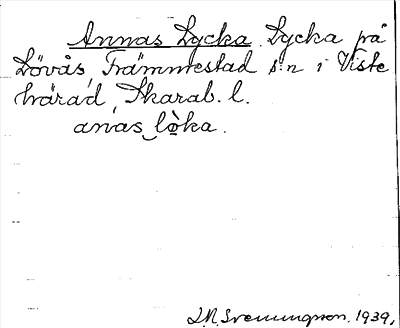 Annas Lycka. Lycka på
Lövås, Främmestad s:n i Viste
härad, Skarab. l.
anas lòka.
1939.